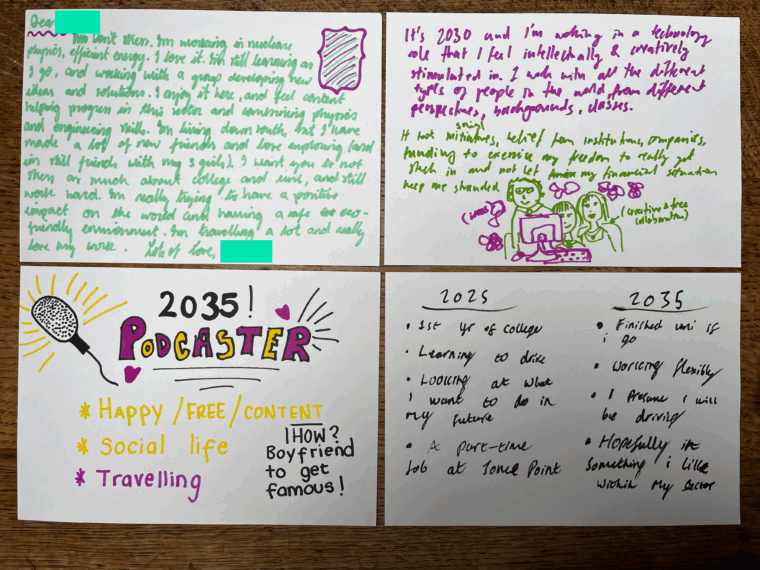 Dear
You don't stress. I'm working in nuclear
physics, efficient energy. I love it. I'm still learning as
I go, and working with a group developing new
ideas and solutions. I enjoy it here, and feel content
helping progress in this sector and combining physics
and engineering skills. I'm living down south, but I have
made a lot of new friends and love exploring (and
im still friends with my 3 girls). I want you to not
stress as much about college and uni, and still
work hard. I'm really trying to have a positive
impact on the world and having a safe eco-
friendly environment. I'm travelling a lot and really
love my work. Lots of Love,
It's 2030 and I'm working in a technology
role that I feel intellectually & creatively
stimulated in. I work with all the different
types of people in the world, from different
perspectives, backgrounds, classes.
It took social initiatives, belief from institutions, companies,
funding to exercise my freedom to really get
stuck in and not let my financial situation
keep me stranded
(ideas)
(creative & free
collaboration)
2035!
PODCASTER
* HAPPY/FREE/CONTENT
* Social life
* Travelling
HOW?
Boyfriend
to get
famous!
2025
• 1st yr of college
• Learning to drive
• Looking at what
I want to do in
my future
• A part-time
Job at Point
2035
• Finished uni if
i go
• Working flexibly
• I Presume I will
be driving
• Hopefully in
Something i like
within my Sector